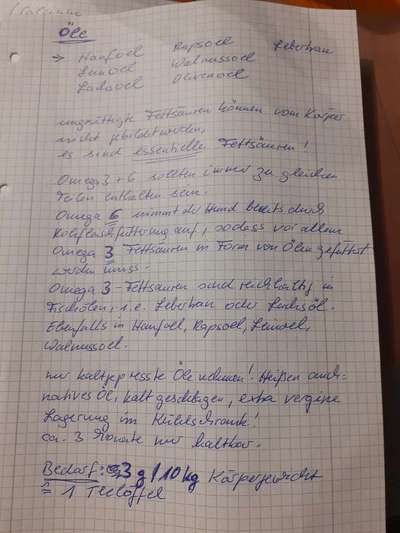 Öle
→ Hanfoel Rapsoel Lebertran
Leinoel Walnussoel
Lachsoel Olivenoel
ungesättigte Fettsäuren können vom Körper
nicht gebildet werden,
es sind essentielle Fettsäuren!
Omega 3 + 6 sollten immer zu gleichen
Teilen enthalten sein.
Omega 6 nimmt der Hund bereits durch
Rohfleischfütterung auf, sodass vor allem
Omega 3 Fettsäuren in Form von Ölen gefüttert
werden muss.
Omega 3 - Fettsäuren sind reichhaltig in
Fischölen, i.e. Lebertran oder Lachsöl.
Ebenfalls in Hanfoel, Rapsoel, Leinoel,
Walnussoel.
nur kaltgepresste Öle nehmen! Heißen auch:
natives Öl, kalt geschlagen, extra vergine
Lagerung im Kühlschrank!
ca. 3 Monate nur haltbar.
Bedarf: 3 g / 10 kg Körpergewicht
≙ 1 Teelöffel